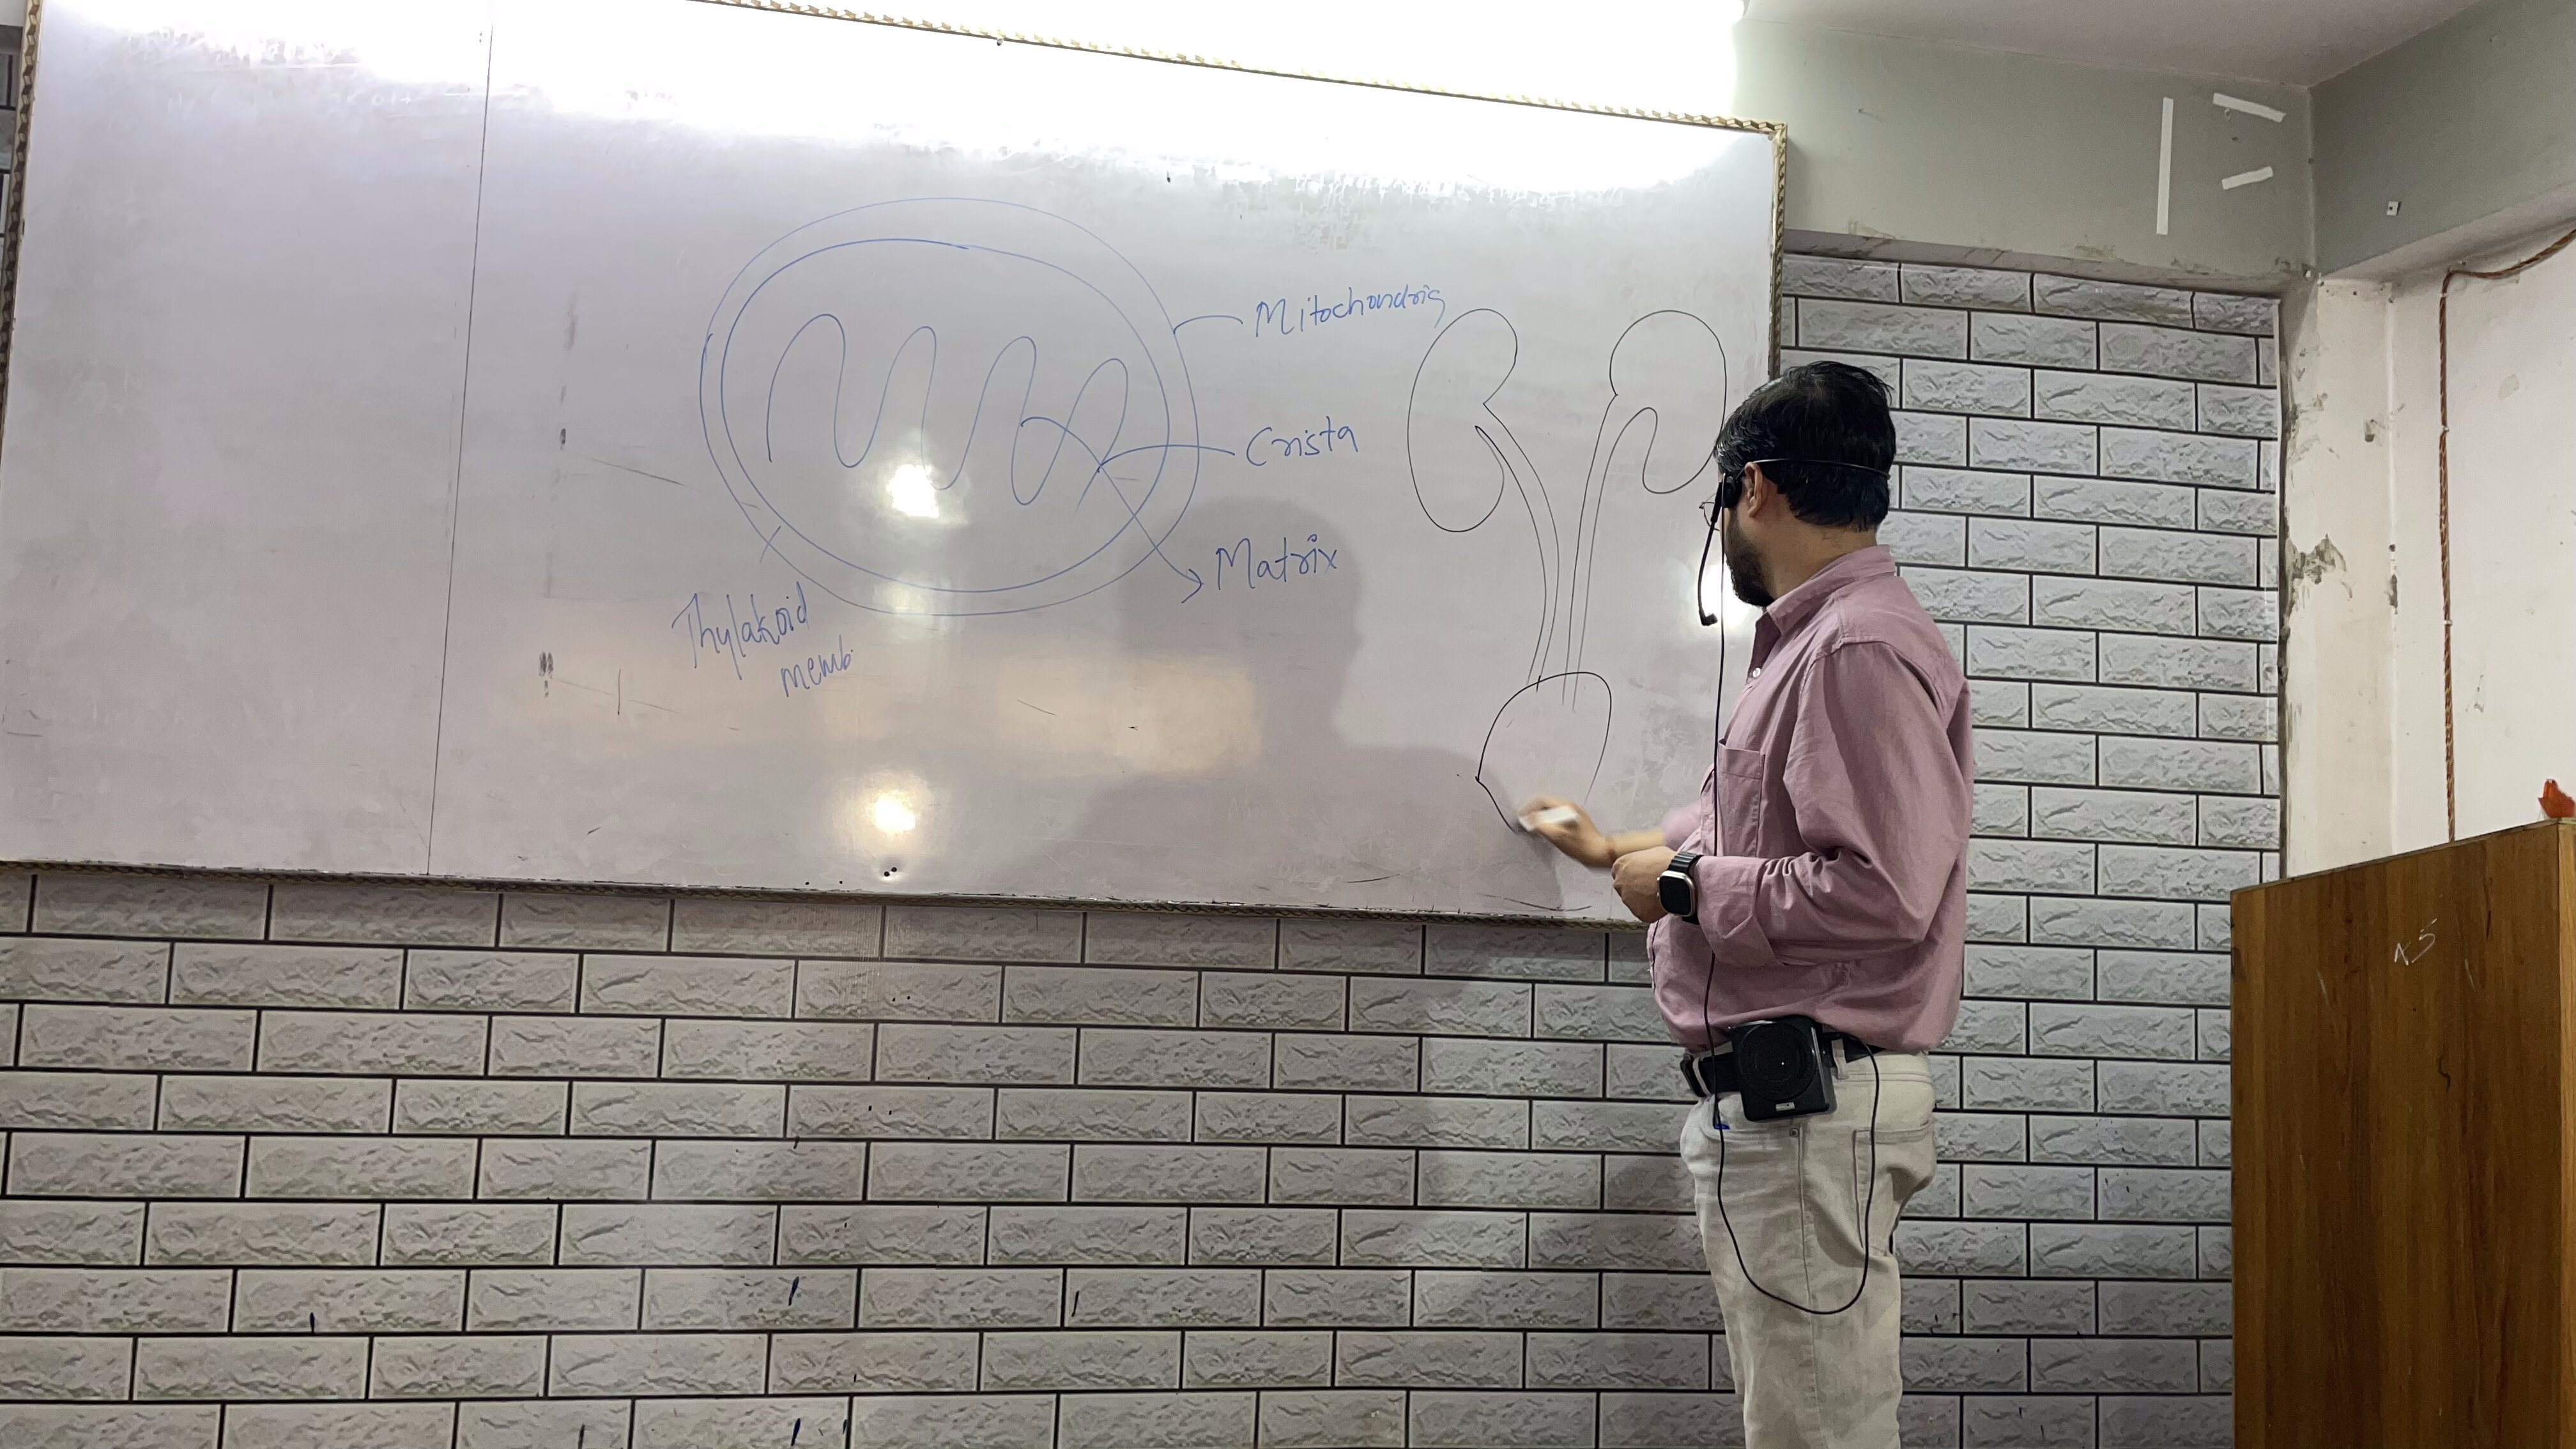 Mitochondria
Crista
Matrix
Thylakoid
memb.